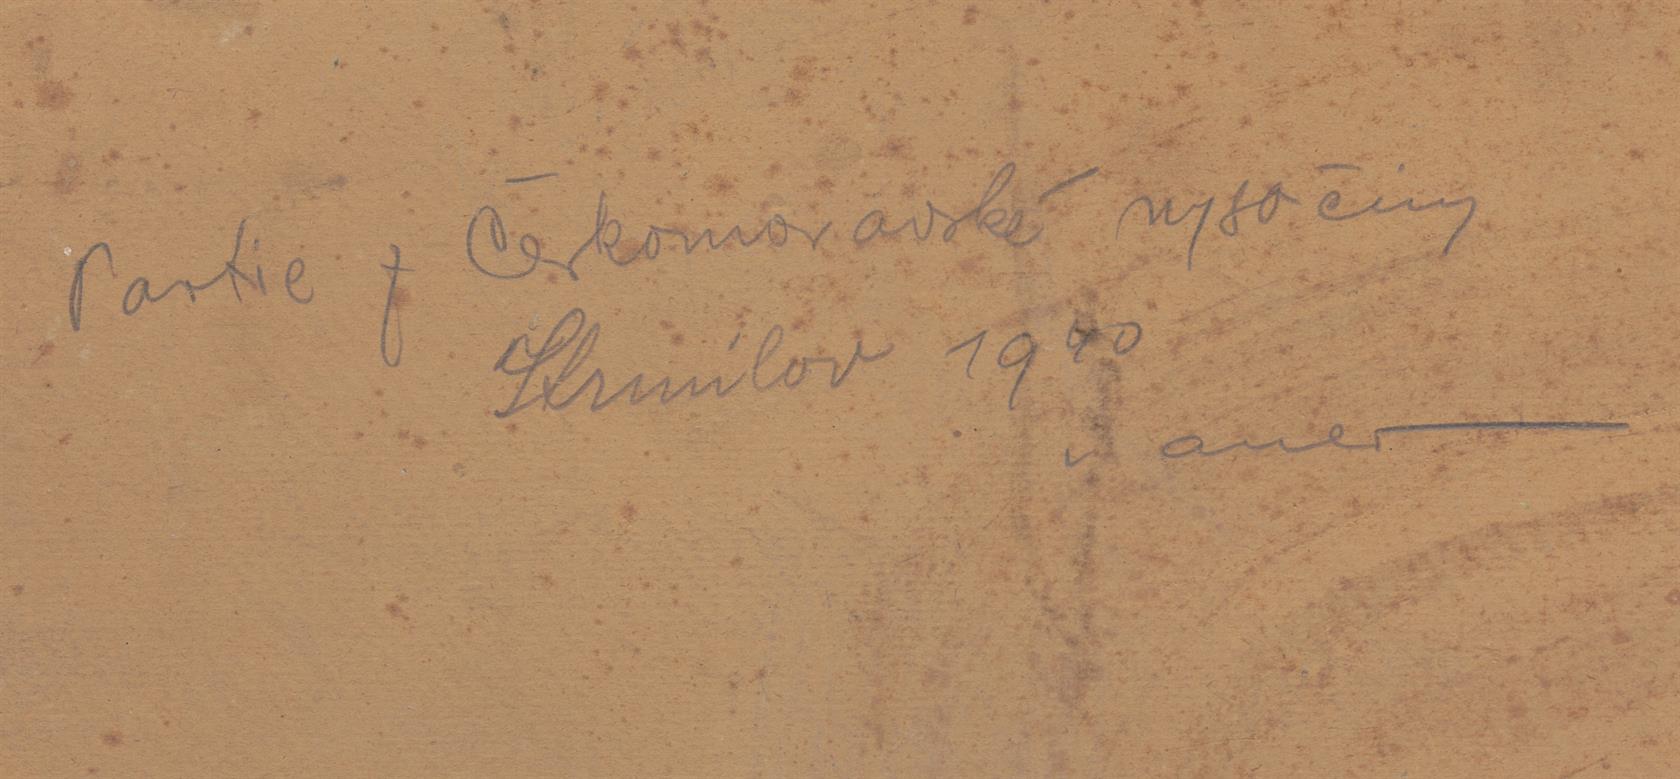 Partie z Českomoravské vysočiny
Strmilov 1940
auer